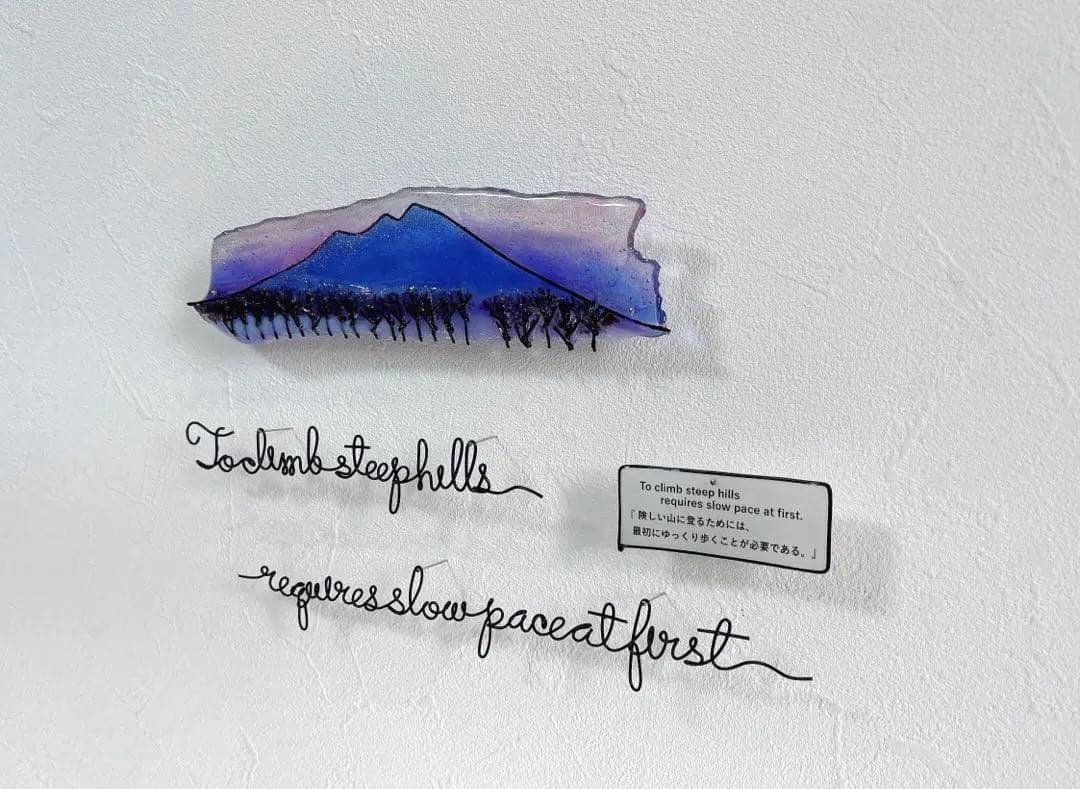 To climb steep hills
requires slow pace at first
To climb steep hills
requires slow pace at first.
『険しい山に登るためには、
最初にゆっくり歩くことが必要である。』